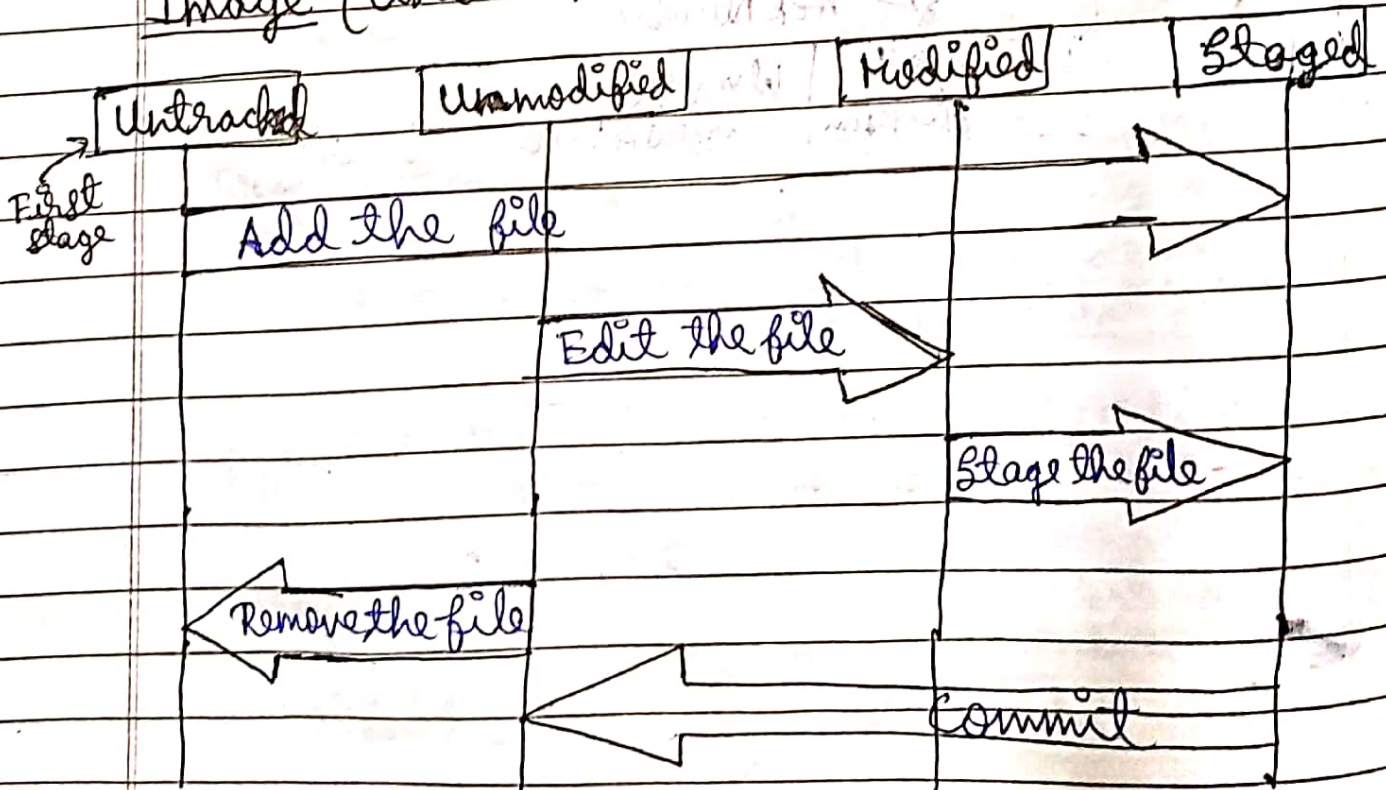 Image (
Untracked
Unmodified
Modified
Staged
First
stage
Add the file
Edit the file
Stage the file
Remove the file
Commit